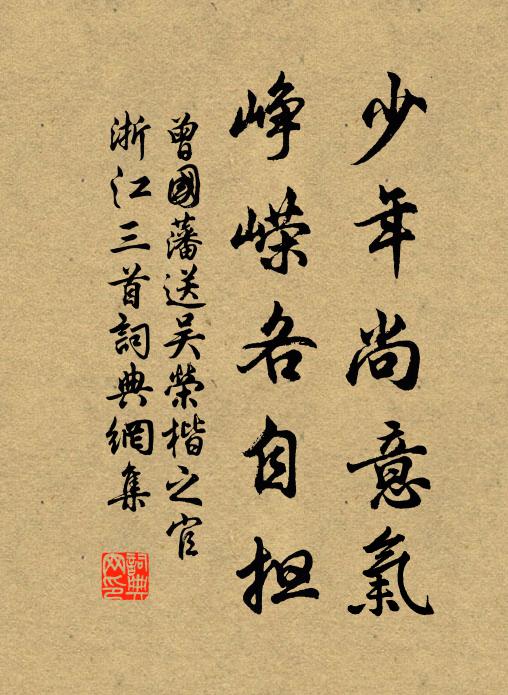 少年尚意氣
崢嶸各自担
曾國藩送吴榮楷之官
浙江三首詞典網集
詞典网印